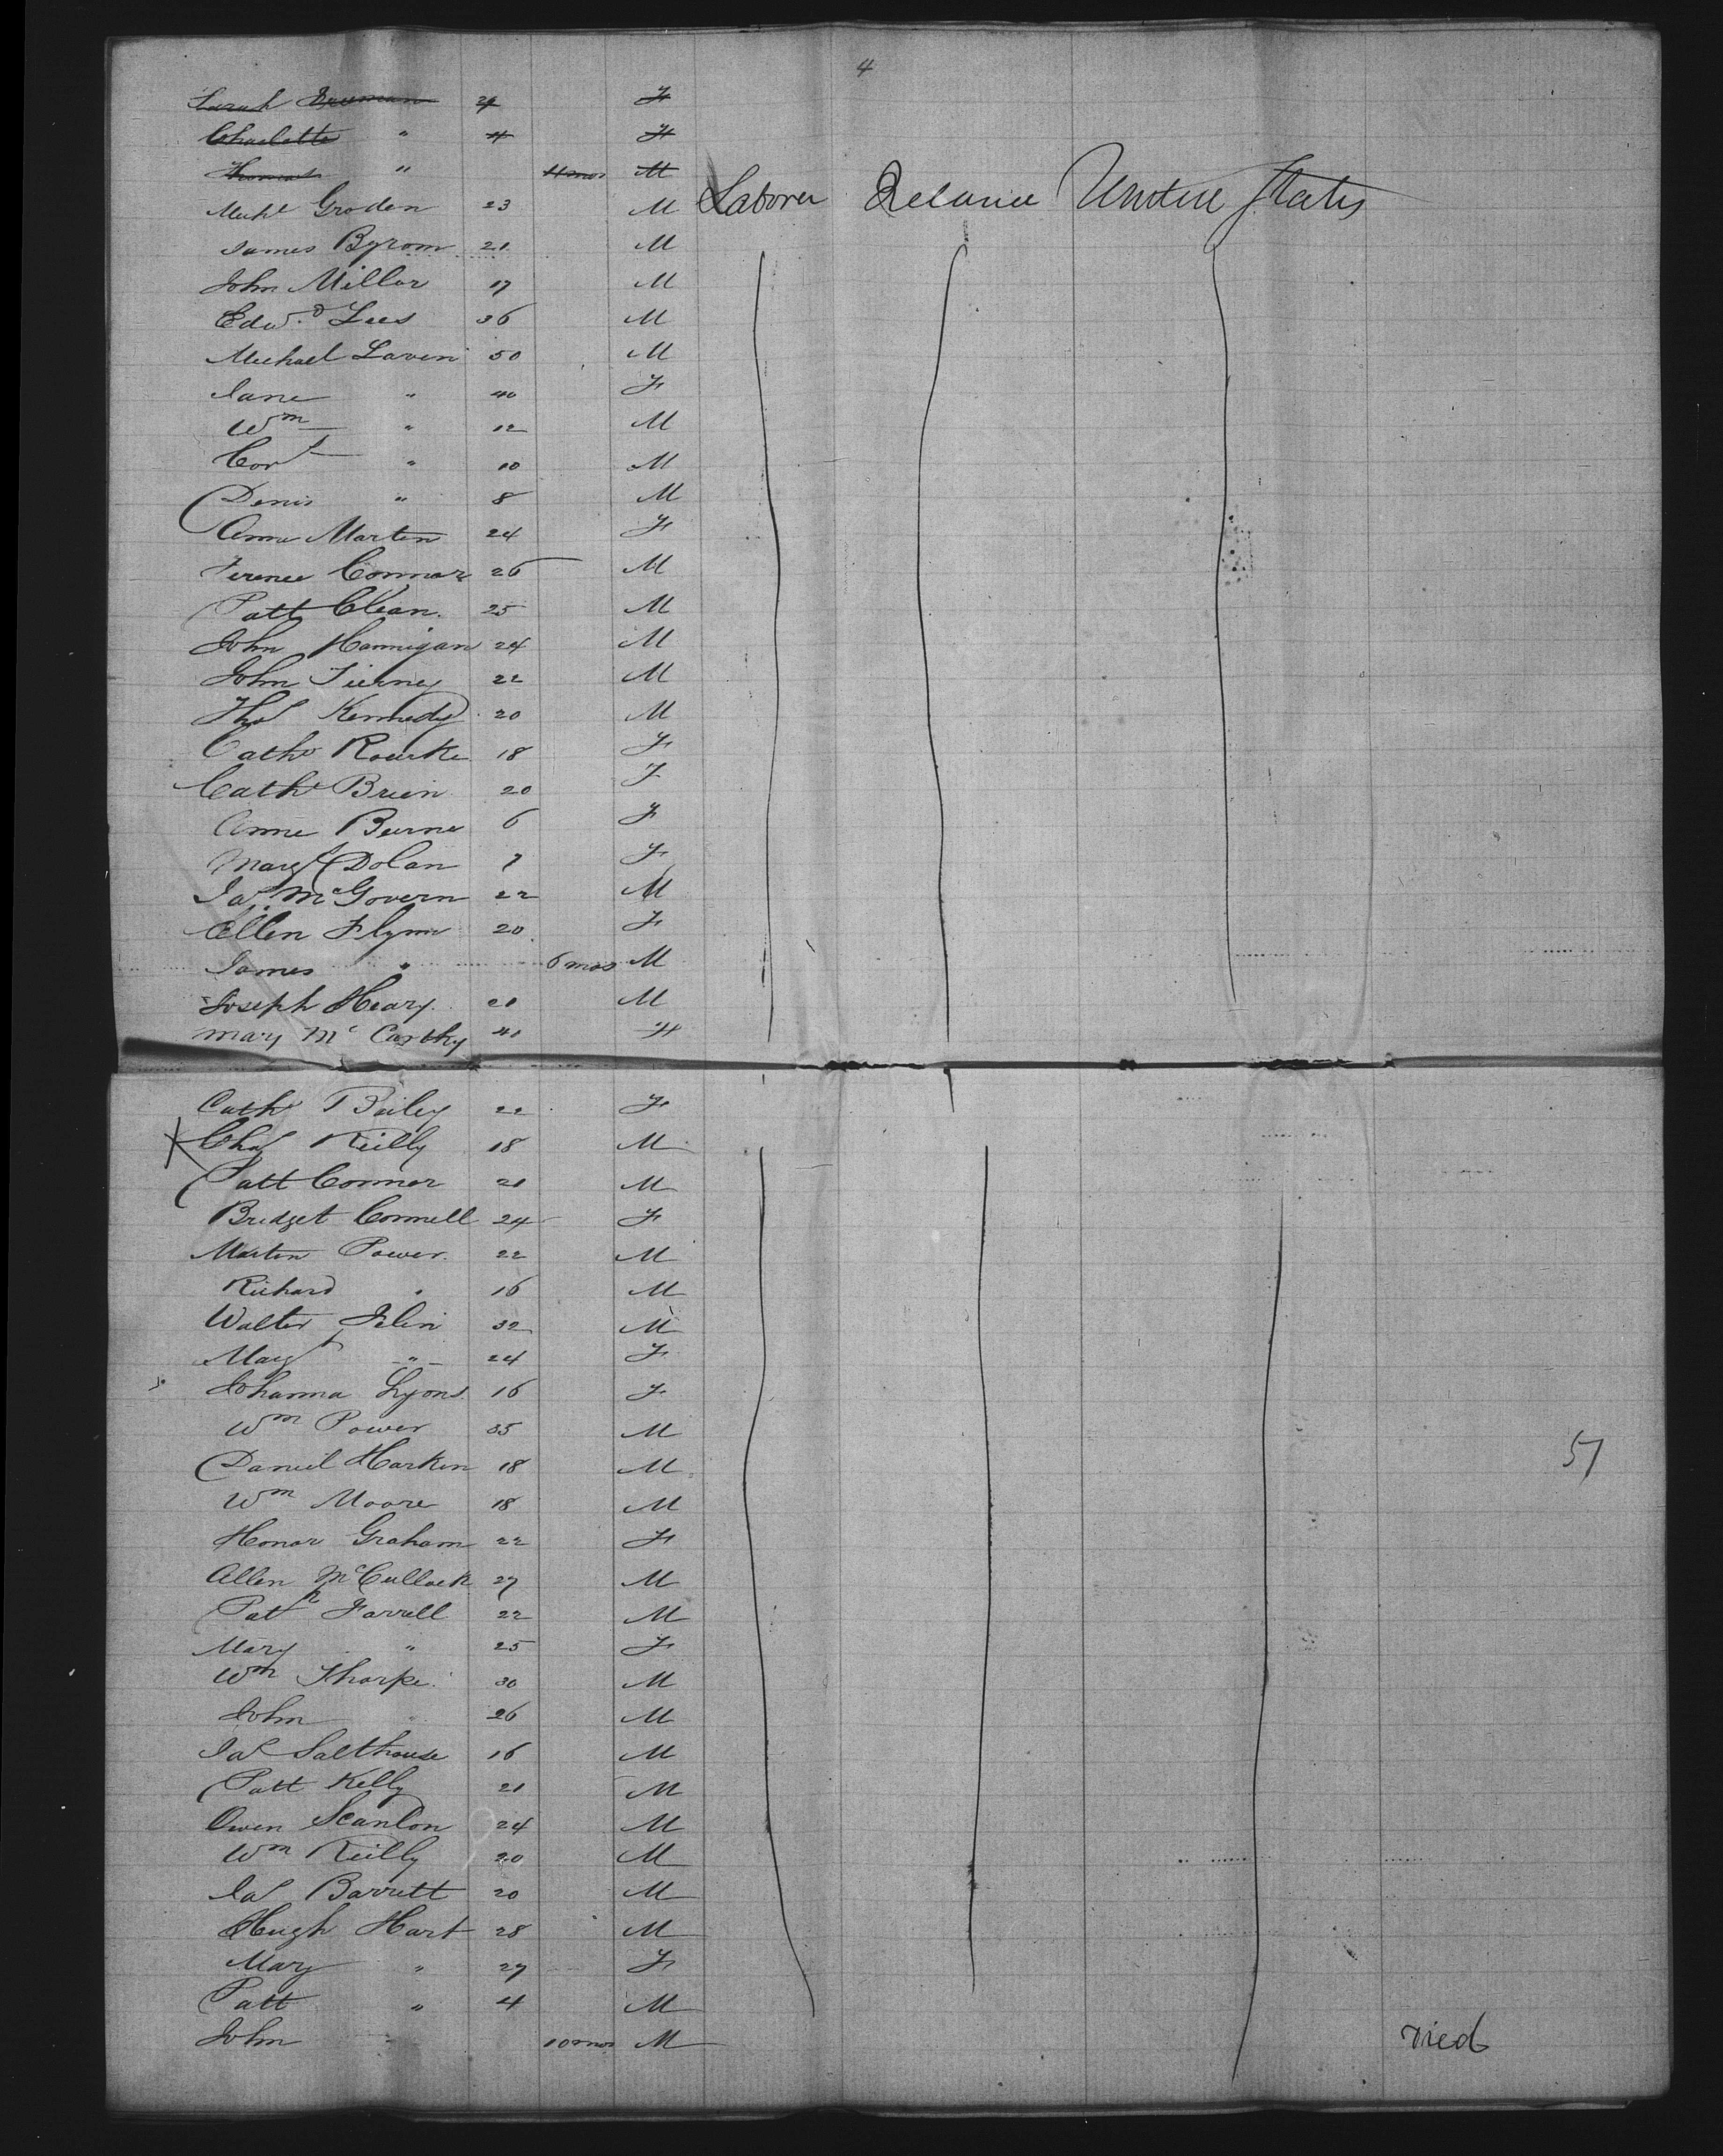 4
Sarah 24 F
Charlotte " 4 F
Thomas " 11 mos M
Michl Groden 23 M Laborer Ireland United States
James Byrom 21 M
John Millar 17 M
Edwd Lees 36 M
Michael Laven 50 M
Jane " 40 F
Wm " 12 M
" 10 M
Denis " 8 M
Anne Martin 24 F
Terence Connor 26 M
Patt Clean 25 M
John Hannigan 24 M
John Tierney 22 M
Thos Kennedy 20 M
Cathe Rourke 18 F
Cathe Brien 20 F
Anne Burne 6 F
Margt Dolan 7 F
Jas McGovern 22 M
Ellen Flynn 20 F
James " 6 mos M
Joseph Heary 21 M
Mary McCarthy 41 F
Cathe Bailey 22 F
Chas Reilly 18 M
Patt Connor 21 M
Bridget Connell 24 F
Martin Power 22 M
Richard " 16 M
Walter Felin 32 M
Margt " 24 F
Johanna Lyons 16 F
Wm Power 35 M
Daniel Harkin 18 M 57
Wm Moore 18 M
Honor Graham 22 F
Allen McCullock 27 M
Patk Farrell 22 M
Mary " 25 F
Wm Thorpe 30 M
John " 26 M
Jas Salthouse 16 M
Patt Kelly 21 M
Owen Scanlon 24 M
Wm Reilly 20 M
Jas Barrett 20 M
Hugh Hart 28 M
Mary " 27 F
Patt " 4 M
John 10 mos M Died